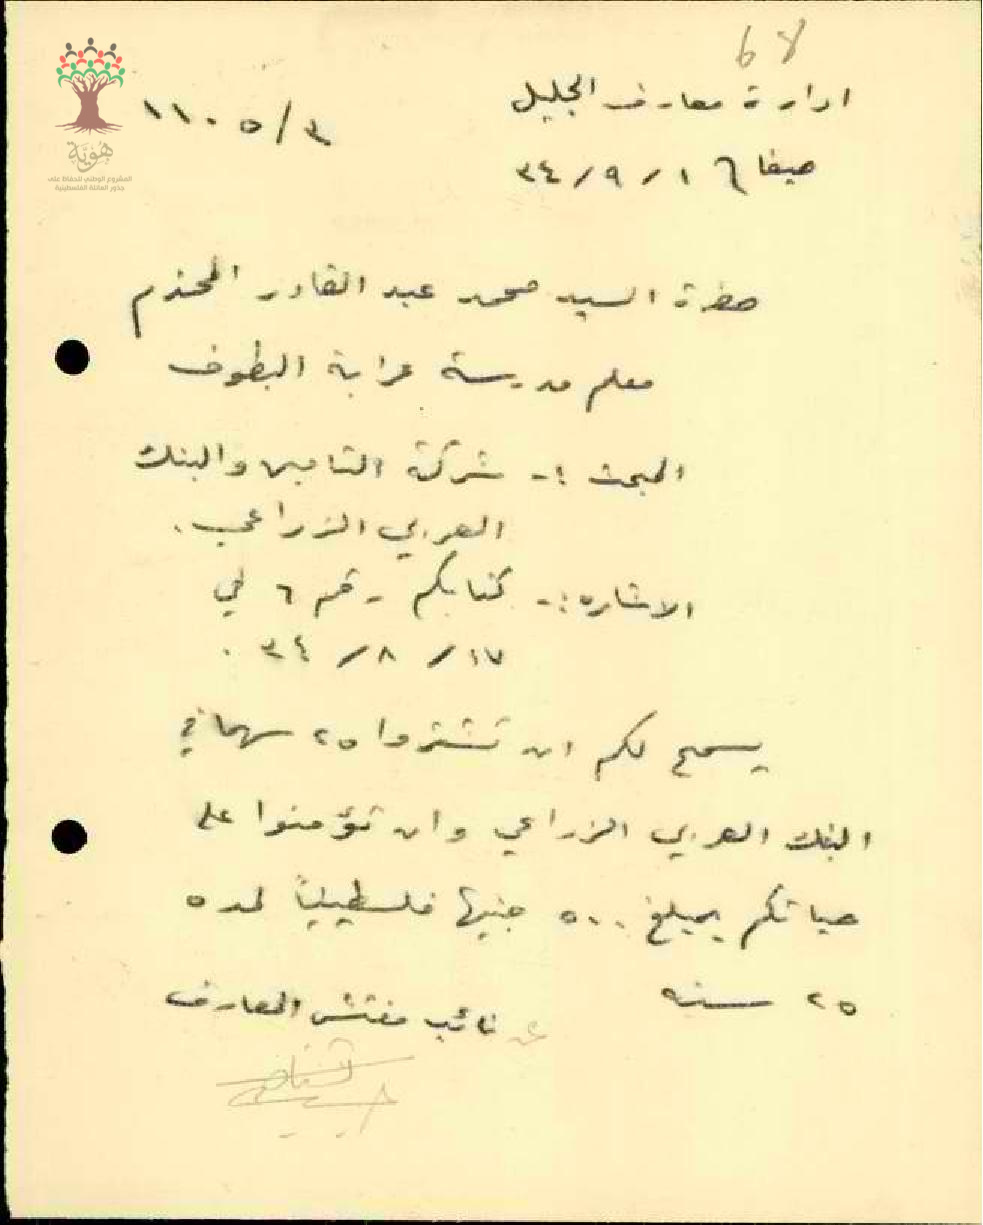 68
ادارة معارف الجليل
١١٠٥/٣
حيفا ١٦/٩/٣٤
هُوِيَّة
المشروع الوطني للحفاظ على
جذور العائلة الفلسطينية
حضرة السيد محمد عبد القادر المحترم
معلم مدرسة عرابة البطوف
المبحث :- شركة التأمين والبنك
العربي الزراعي.
الاشاره :- كتابكم رقم ٦ في
١٧/٨/٣٤ .
يسمح لكم ان تشتروا ٢٥ سهما في
البنك العربي الزراعي وان تؤمنوا على
حياتكم بمبلغ ٥٠٠ جنيها فلسطينياً لمده
٢٥ سنه
عن نائب مفتش المعارف